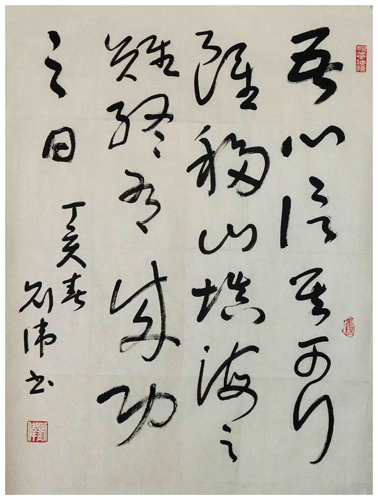 吾心信其可行
雖移山填海之
難终有成功
之日
丁亥春
刘伟书